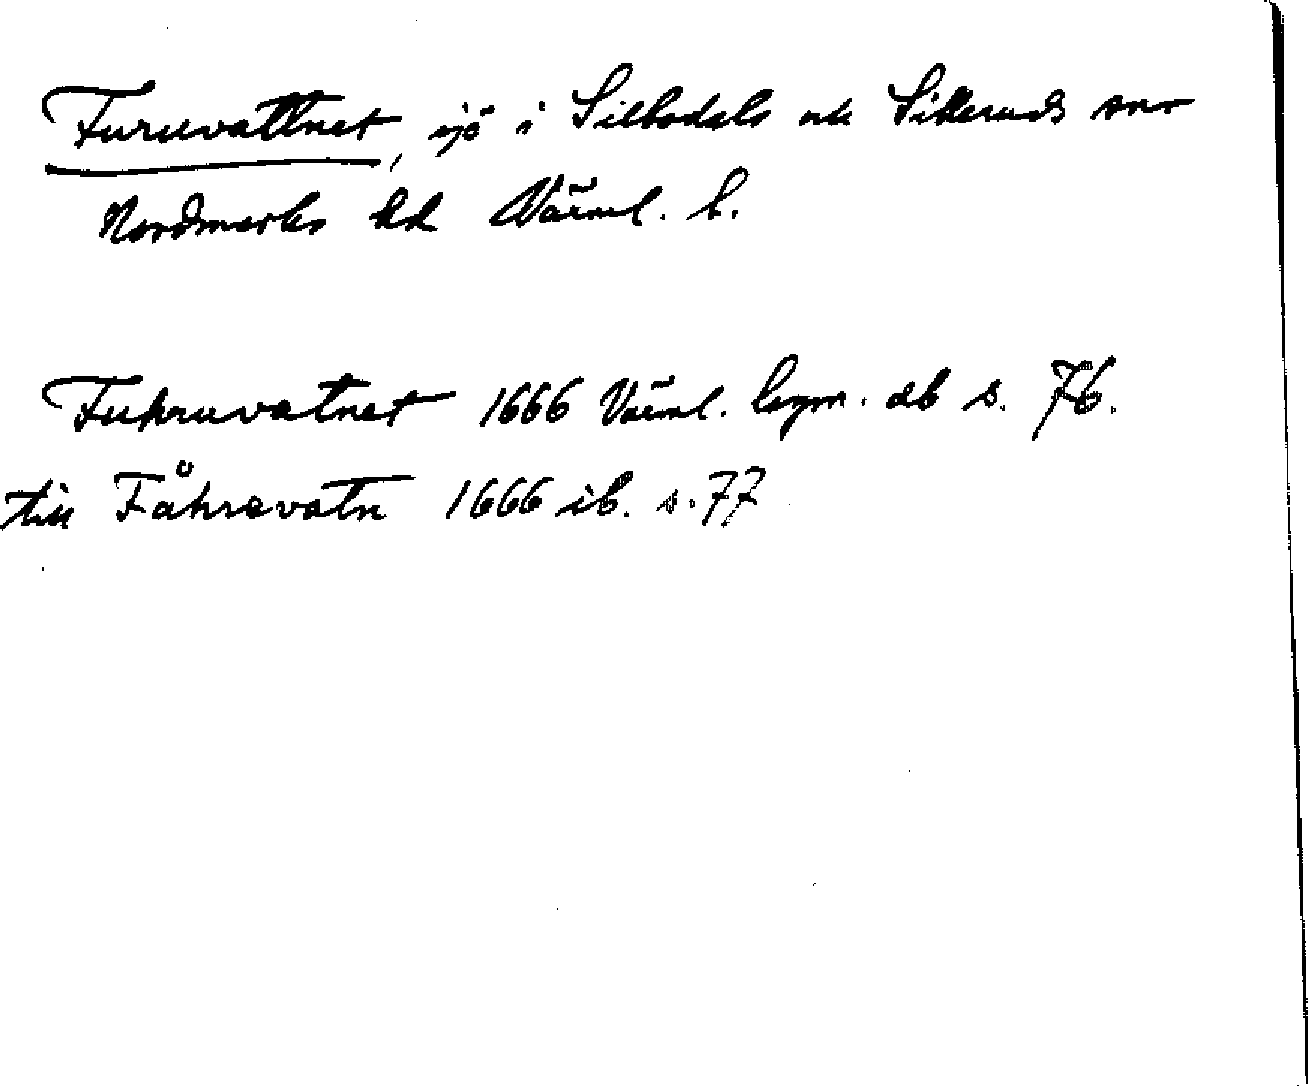 Furuvattnet, sjö i Silbodals och Silleruds snr
Nordmarks hd Värml. l.
Fuhruvatnet 1666 Värml. lagm. db s. 76.
till Fåhrevatn 1666 ib. s. 77